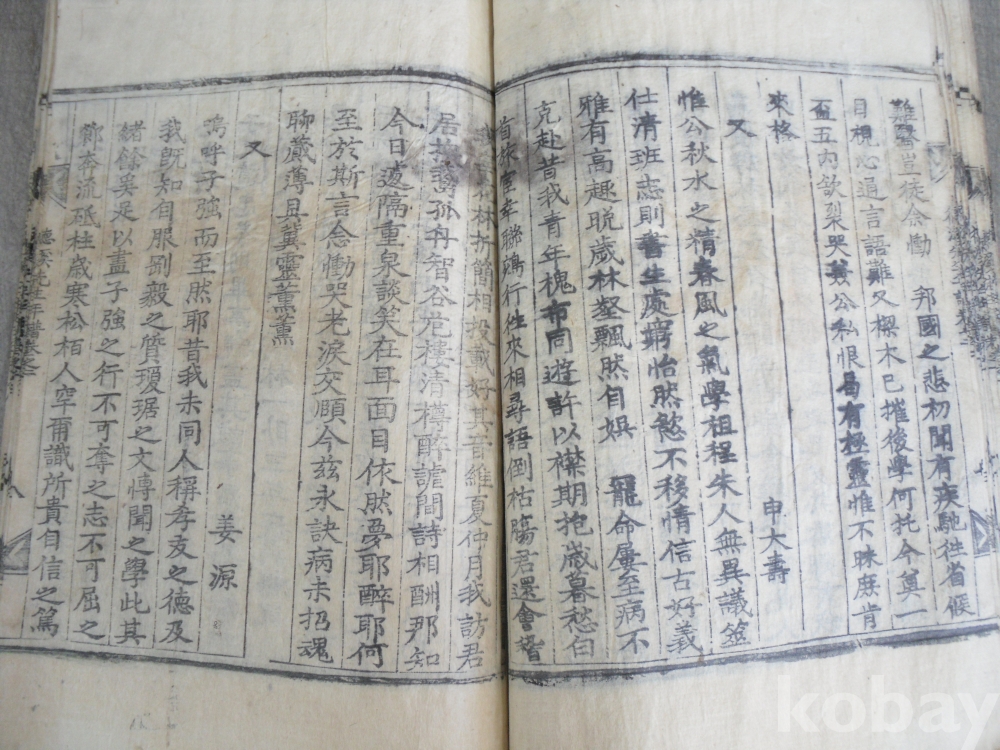 難醫豈徒余慟 邦國之悲初聞有疾馳往省候
目視心道言語難又樑木已摧後學何托今奠一
盃五內欽裂哭 公私恨曷有極靈惟不昧庶肯
來格
又 申大壽
惟公秋水之精春風之氣學祖程朱人無異議筮
仕清班志則書生處窮怡然慾不移情信古好義
雅有高趣晩歲林壑飄然自娛 寵命屢至病不
克赴昔我青年槐市同遊許以襟期抱歲暮愁白
首旅 幸聯鴻行往來相尋語倒枯膓君還會
林折簡相投載好其音維夏仲月我訪君
居 孤舟智谷 樓清樽 詩相酬那知
今日遽隔重泉談笑在耳面目依然夢耶醉耶何
至於斯言念慟哭老淚交頤今玆永訣病未招魂
聊薦薄具冀靈薰薰
又 姜源
嗚呼子強而至然耶昔我未同人稱孝友之德及
我旣知自服剛毅之質瓊琚之文慱聞之學此其
緖餘奚足以盡子強之行不可奪之志不可屈之
節奔流砥柱歲寒松栢人罕甭識所貴自信之篤
德 先生年譜卷
kobay